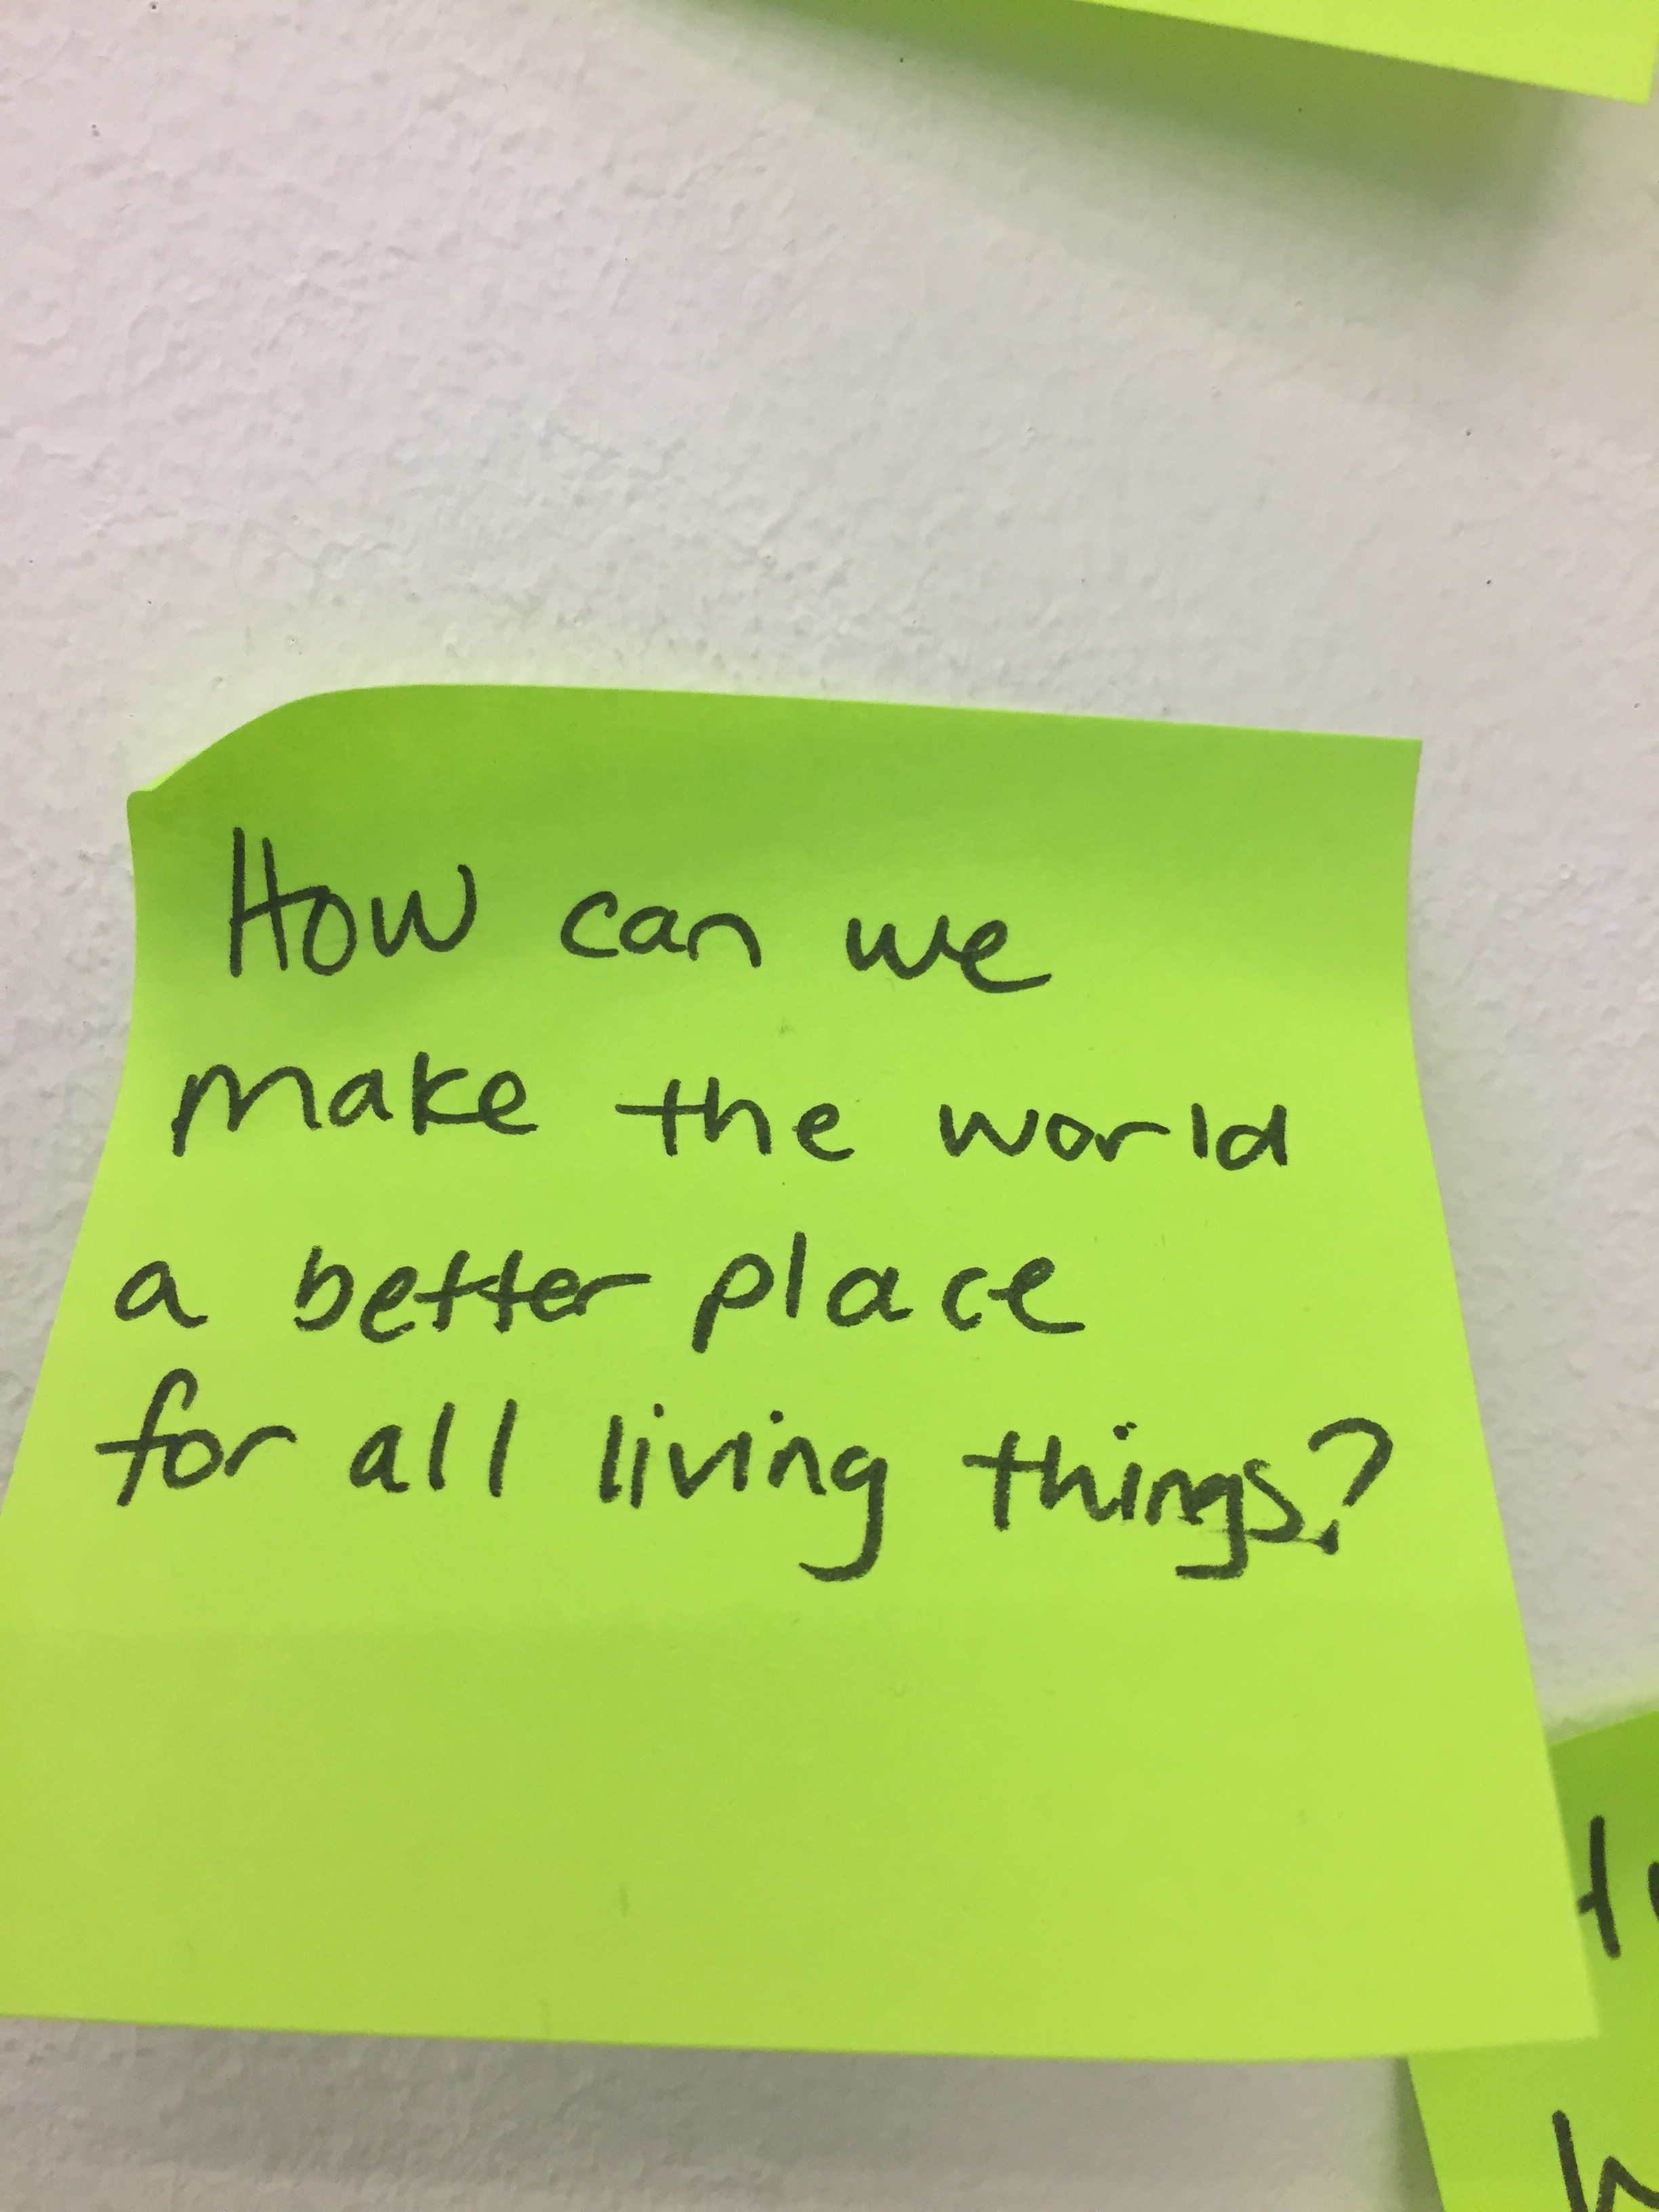 How can we
make the world
a better place
for all living things?